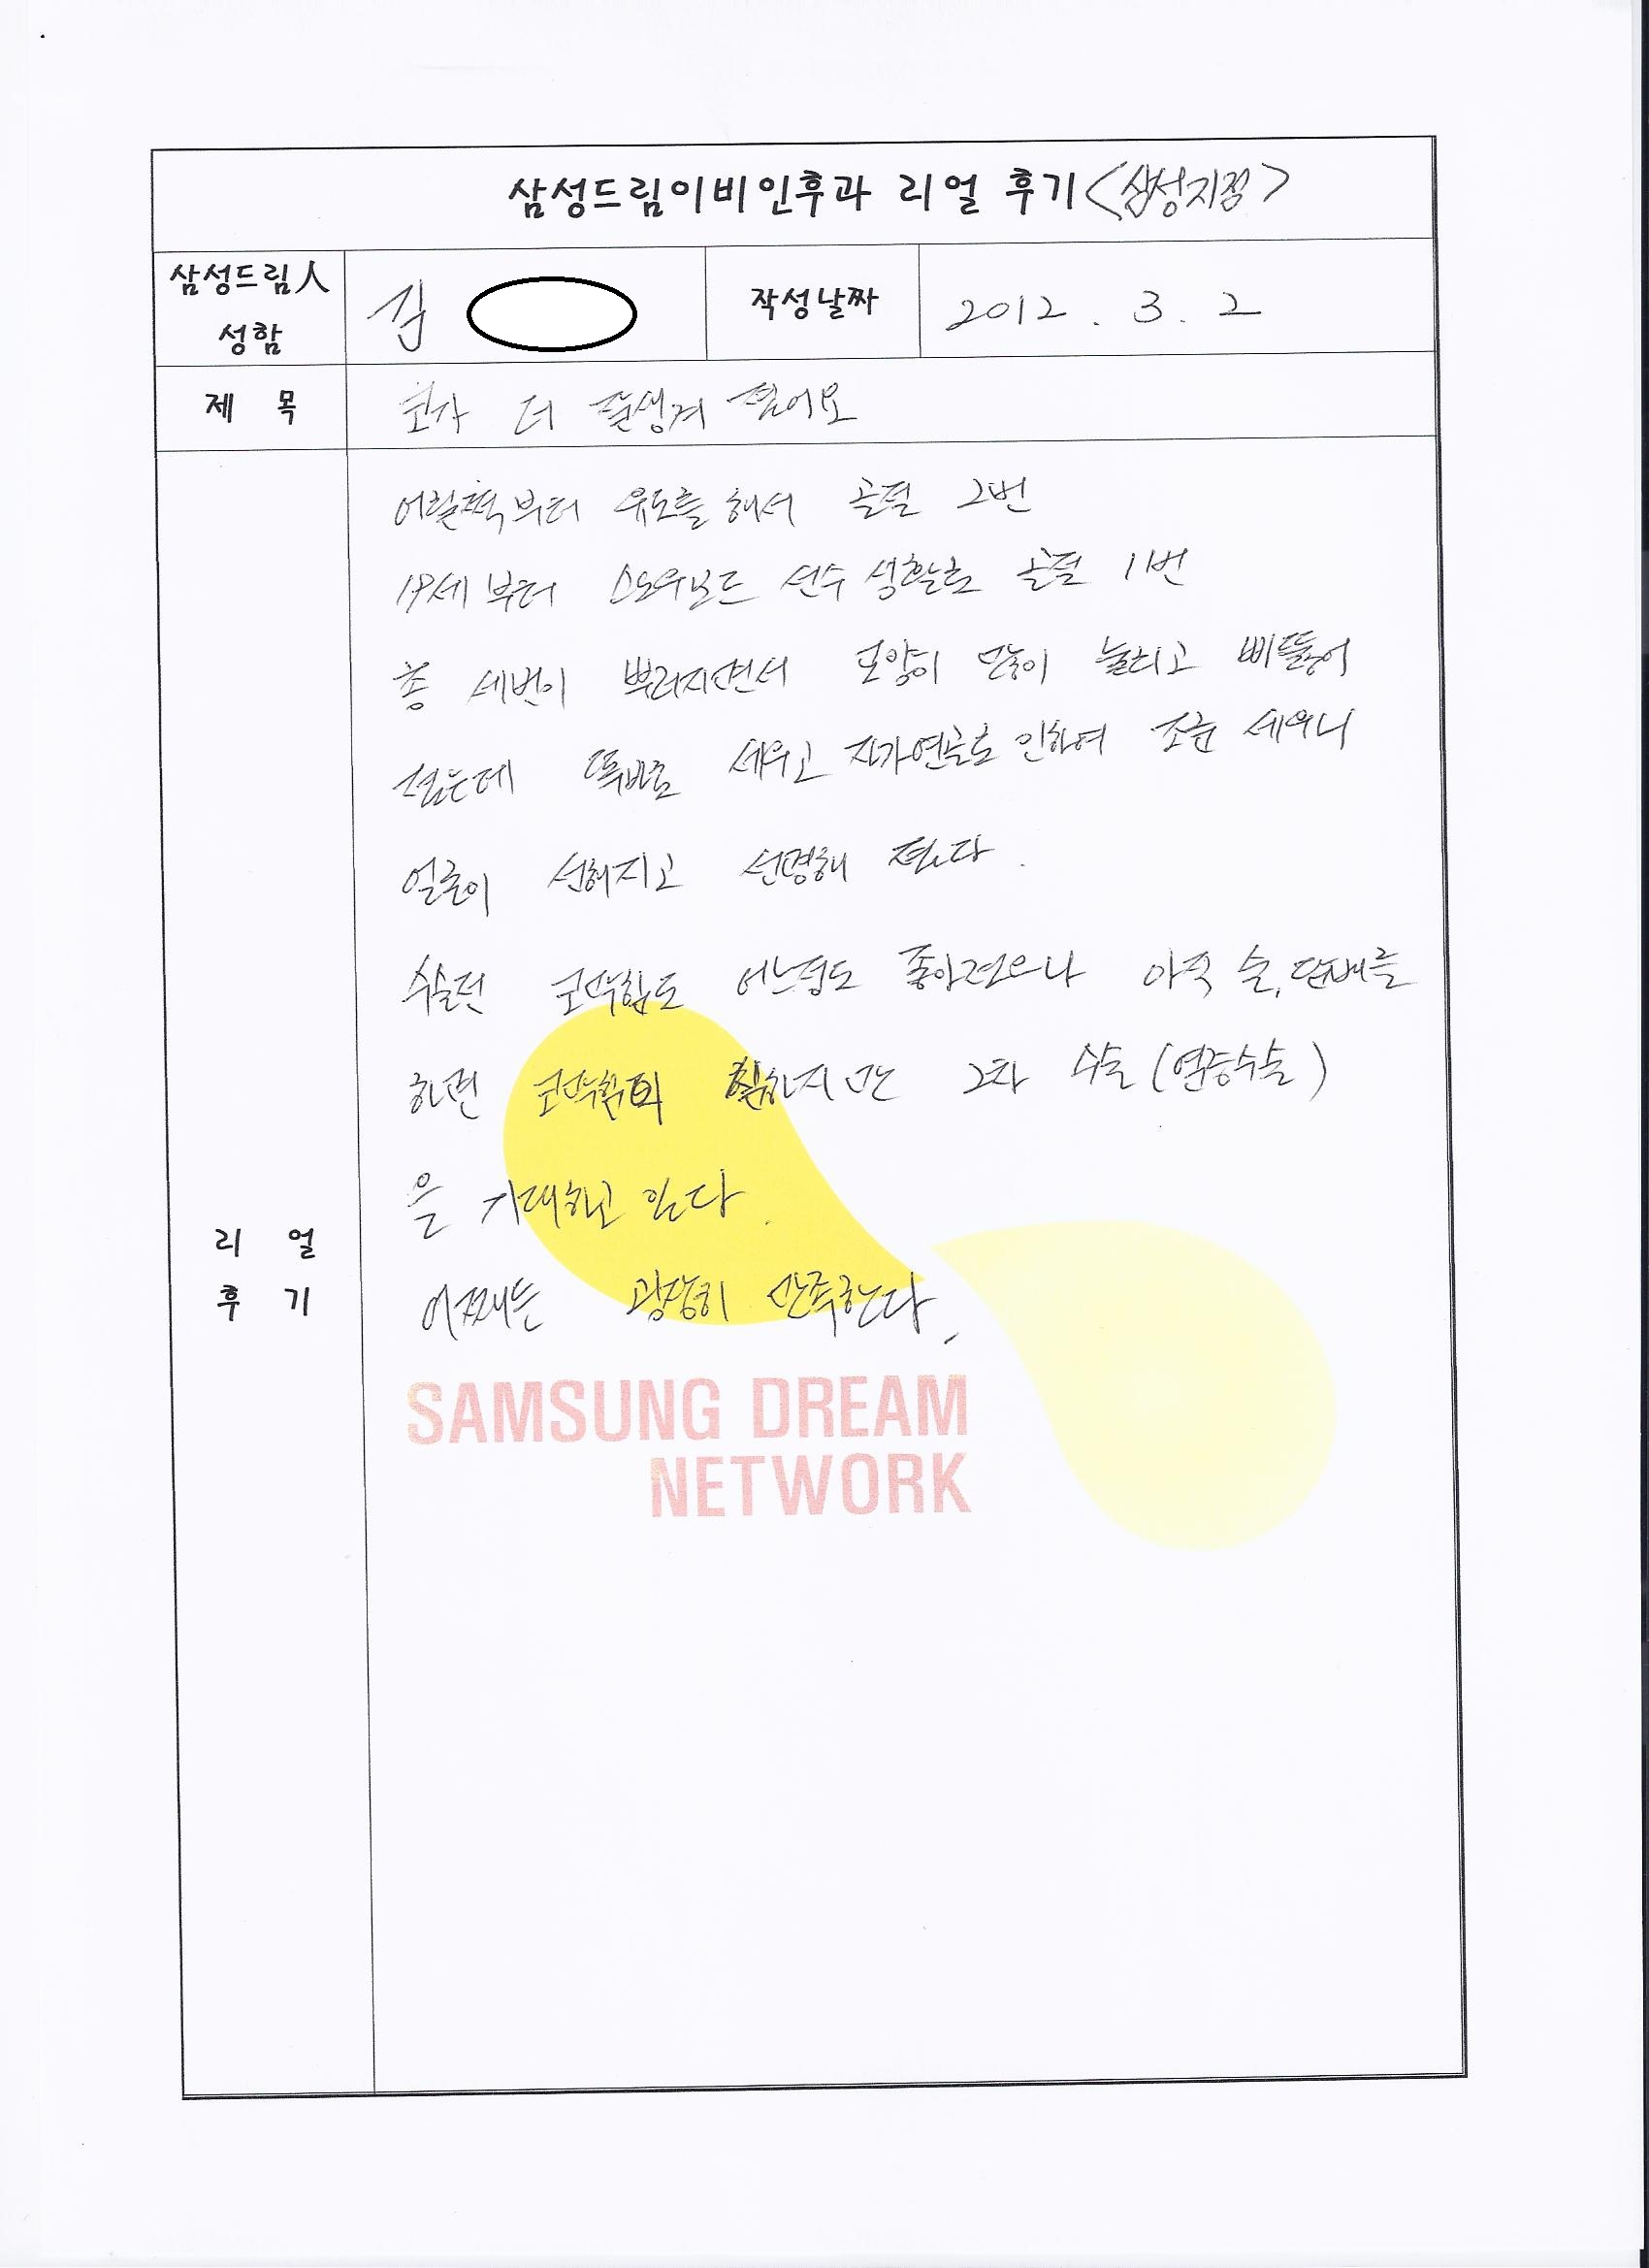 삼성드림이비인후과 리얼 후기 <삼성지점>
삼성드림人
성함
김
작성날짜
2012. 3. 2
제 목
코가 더 잘생겨 졌어요
어릴쩍부터 유도를 해서 골절 2번
19세부터 스노우보드 선수 생활로 골절 1번
총 세번이 뿌러지면서 모양이 많이 눌리고 삐뚤어
졌는데 똑바로 세우고 자가연골로 인하여 조금 세우니
얼굴이 선해지고 선명해 졌다.
수술전 코막힘도 어느정도 좋아졌으나 아직 술, 담배를
하면 코막힘이 심하지만 2차 수술 (염증수술)
을 기대하고 있다.
어쨌든 굉장히 만족한다.
리 얼
후 기
SAMSUNG DREAM
NETWORK